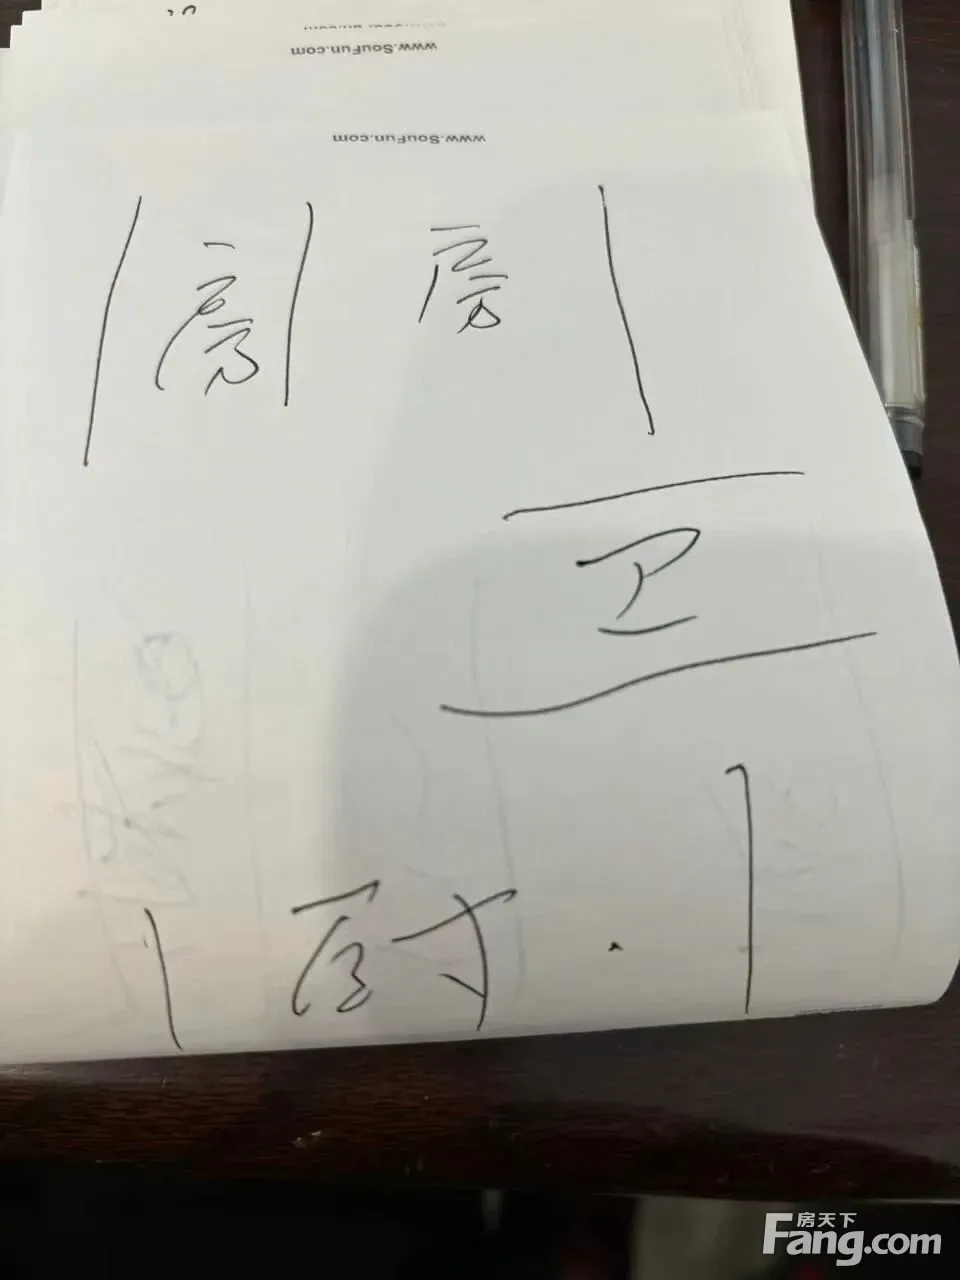 www.SouFun.com
www.SouFun.com
房 房
卫
厨
房天下
Fang.com